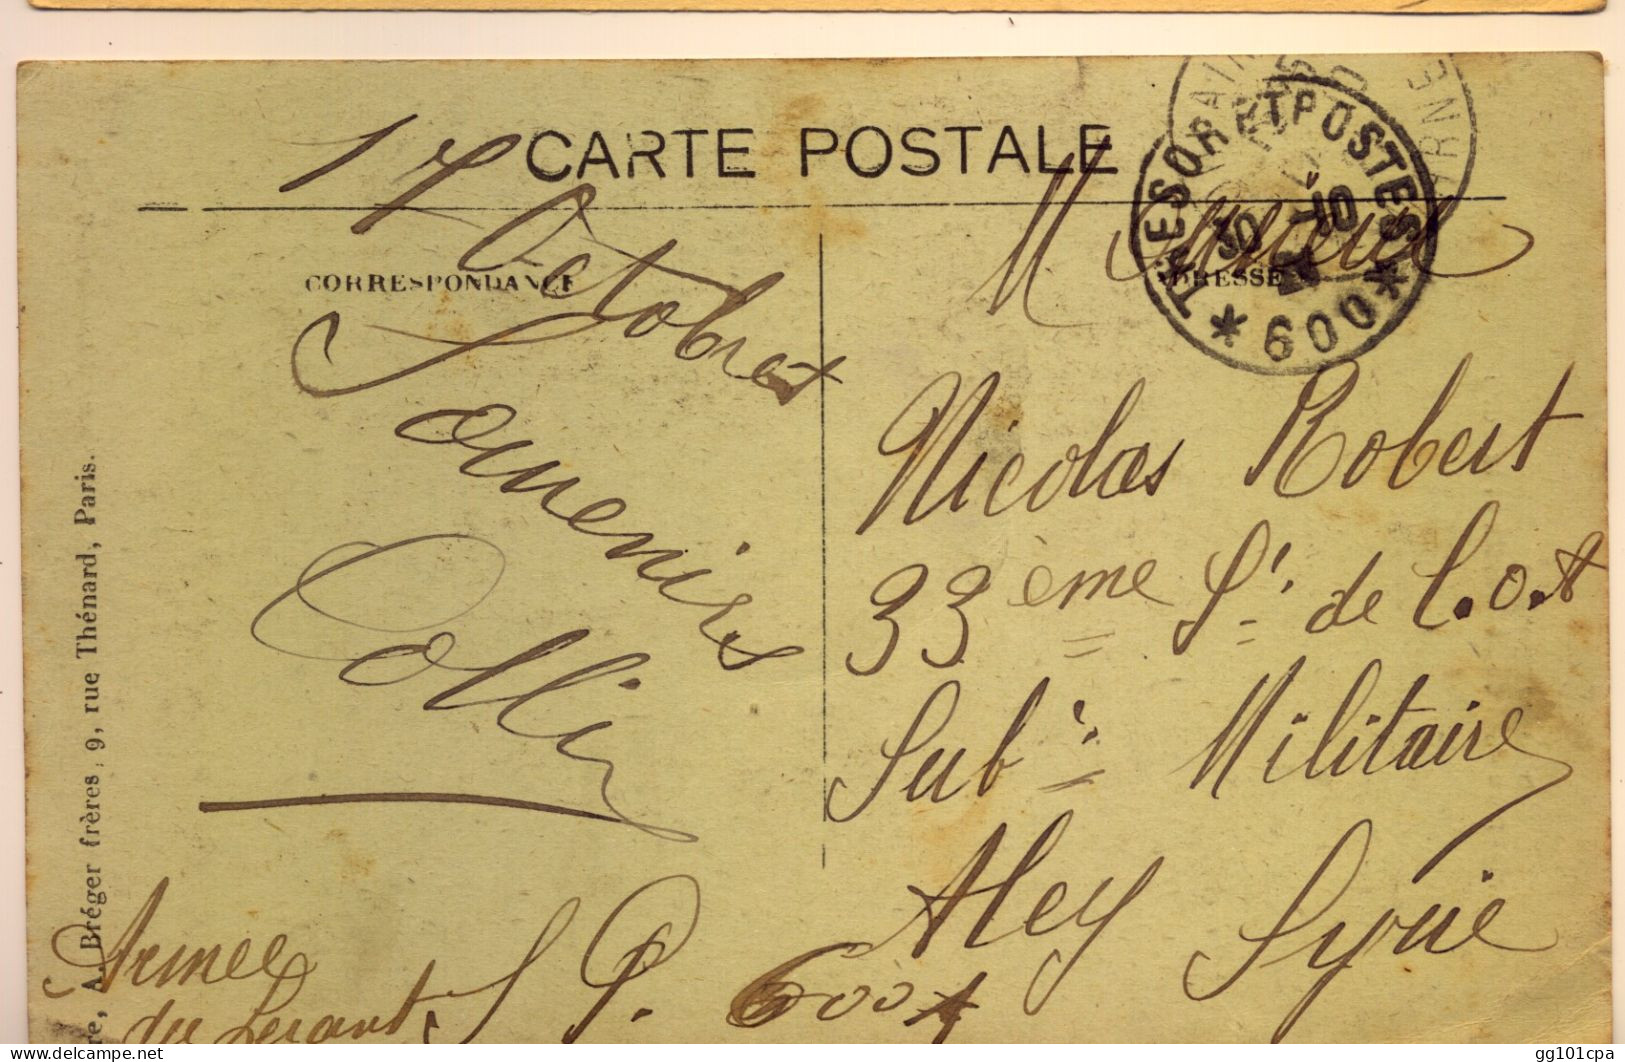 CARTE POSTALE
CORRESPONDANCE
ADRESSE
TRESOR ET POSTES
30 -10
* 600 *
17 Octobre
Souvenirs
Collin
Monsieur
Nicolas Robert
33ème Sn de C.O.A
Subce Militaire
Aley Syrie
Armée
du Levant S P. 600 A
re, A. Bréger frères, 9, rue Thénard, Paris.
delcampe.net
gg101cpa